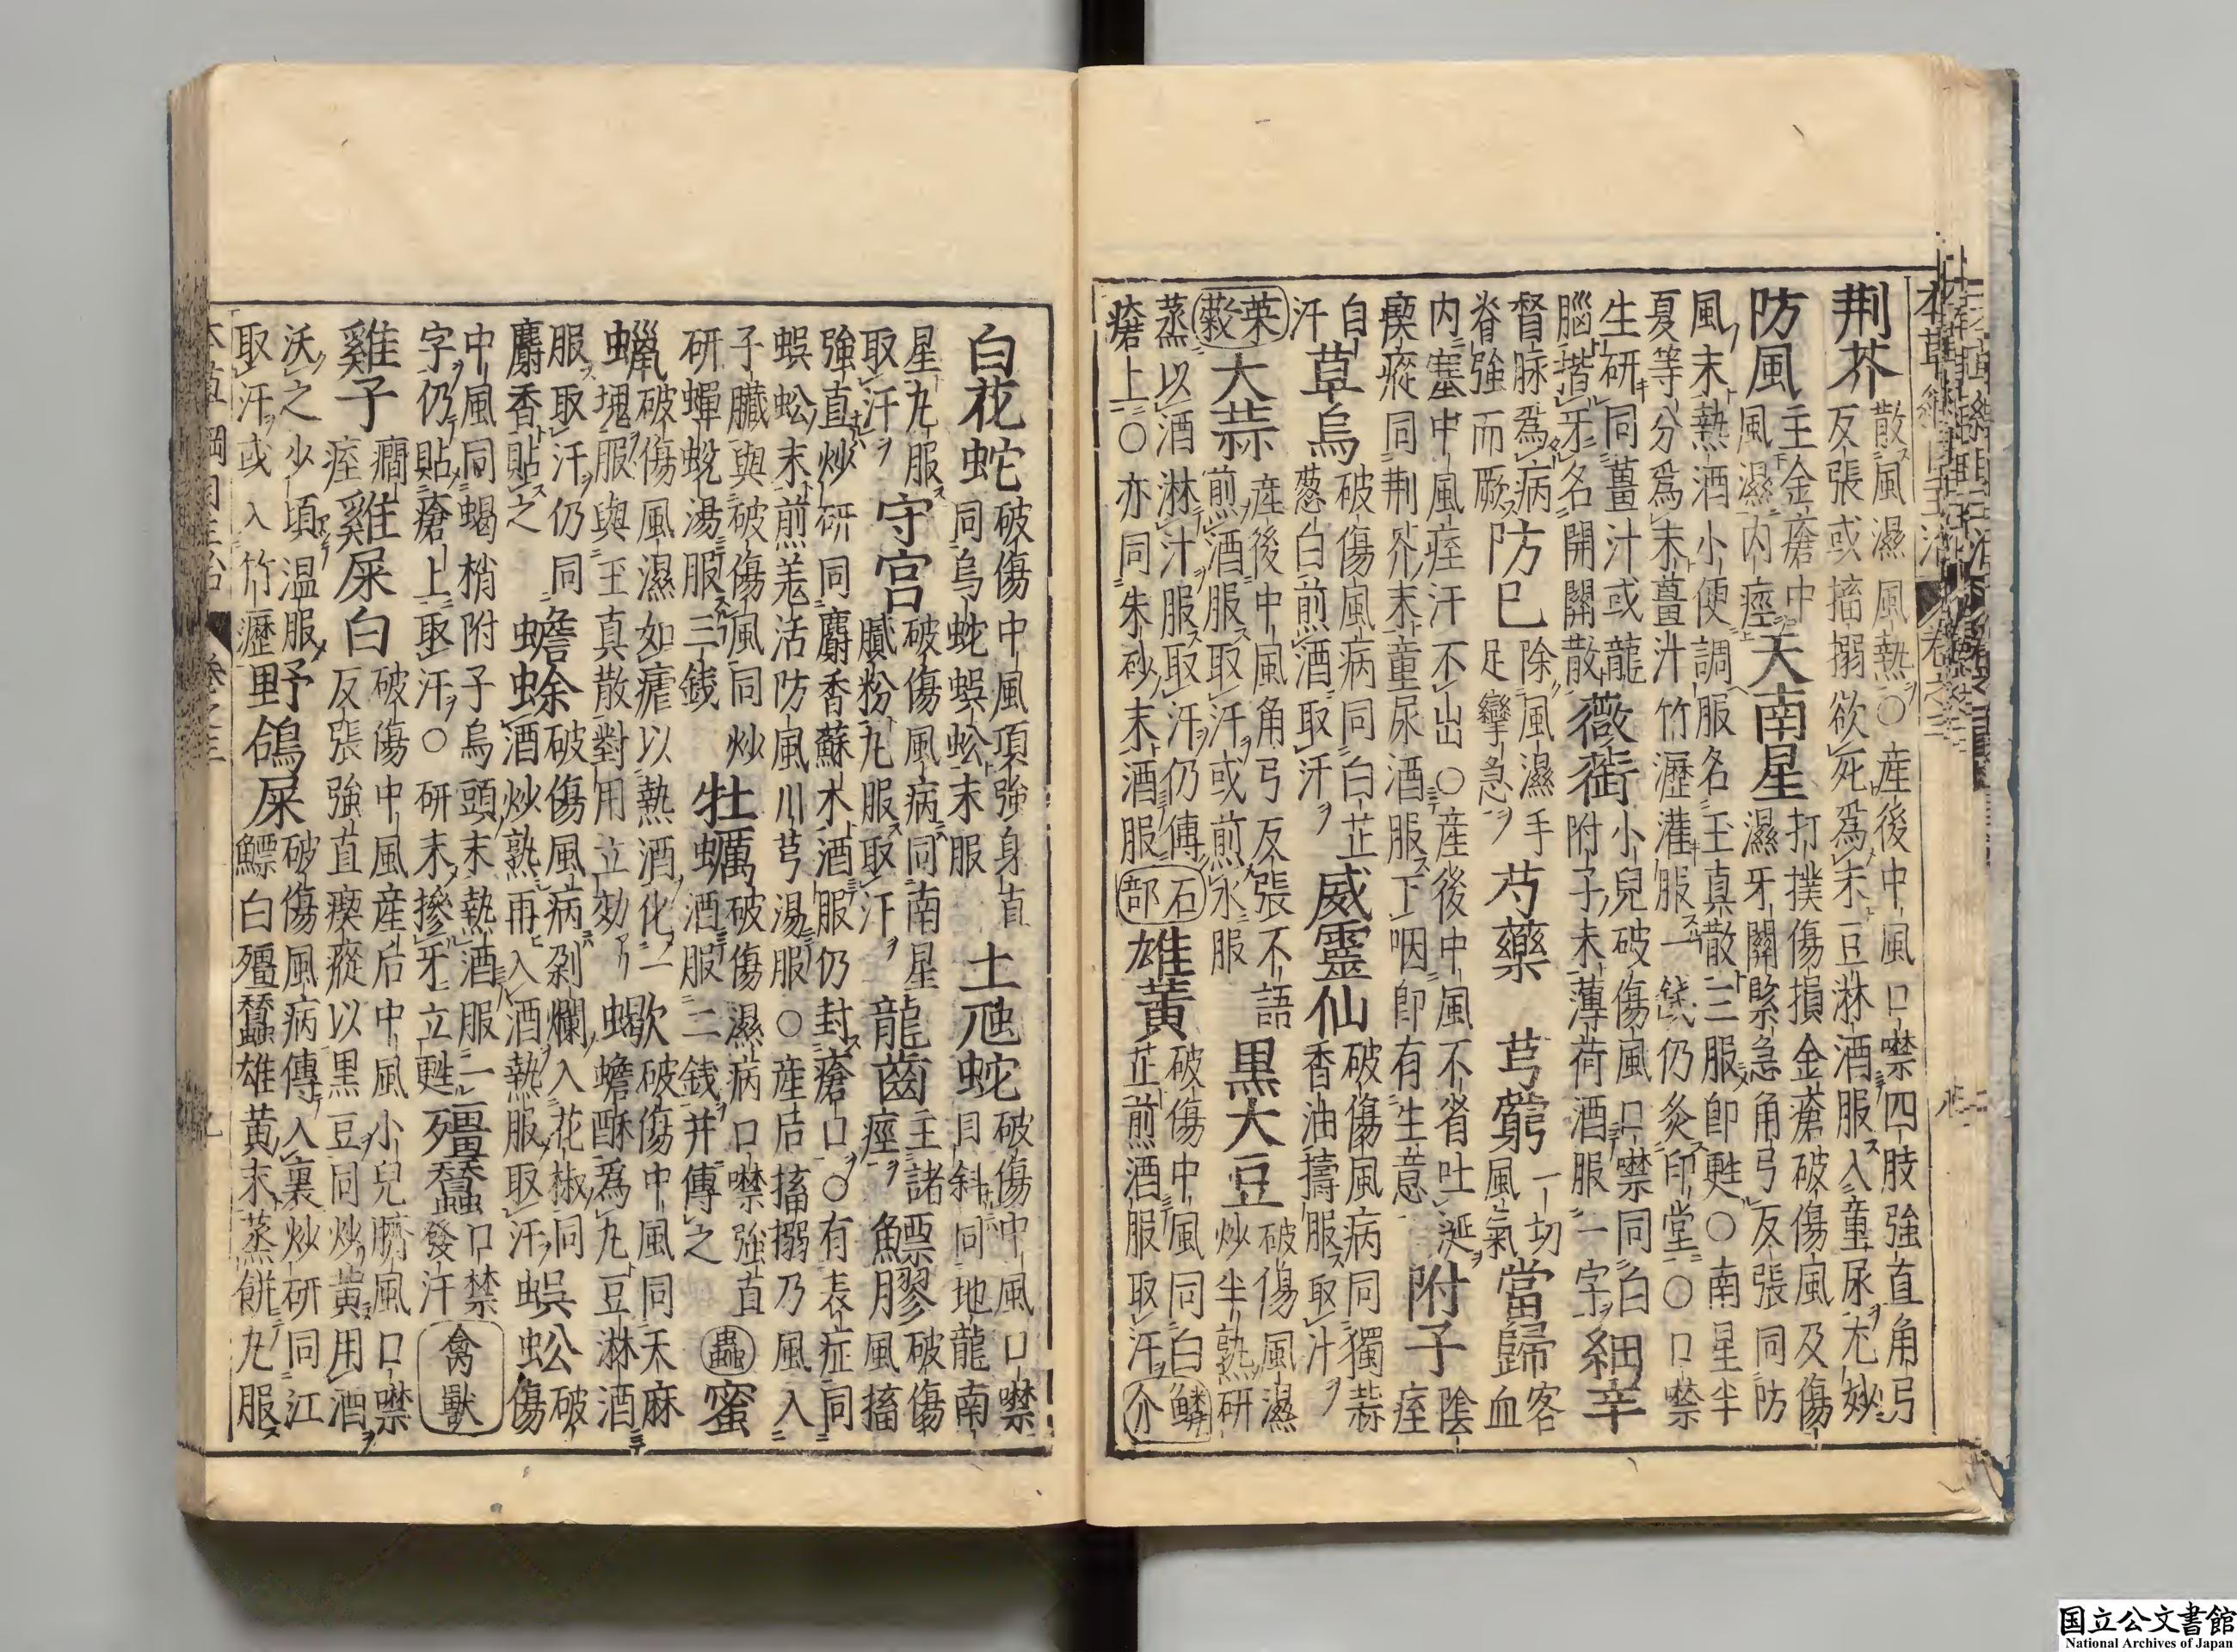 本草綱目主治 卷之三
荆芥散風濕風熱〇產後中風口噤四肢強直角弓反張或搐搦欲死為末豆淋酒服入童尿尤妙
防風主金瘡中風濕內痙天南星打撲傷損金瘡破傷風及傷濕牙關緊急角弓反張同防
風末熱酒小便調服名玉真散三服即甦〇南星半夏等分為末薑汁竹瀝灌服一錢仍灸印堂〇口噤
生研同薑汁或龍腦揩牙名開關散薇銜小兒破傷風口噤同白附子末薄荷酒服一字細辛
督脉為病脊強而厥防已除風濕手足攣急芍藥 芎藭一切風氣當歸客血
內塞中風痙汗不出〇產後中風不省吐涎瘈瘲同荆芥末童尿酒服下咽即有生意附子陰痙
自汗草烏破傷風病同白芷葱白煎酒取汗威靈仙破傷風病同獨蒜香油擣服取汁
菜穀大蒜產後中風角弓反張不語煎酒服取汗或煎水服黑大豆破傷風濕炒半熟研
蒸以酒淋汁服取汗仍傅瘡上〇亦同朱砂末酒服石部雄黃破傷中風同白芷煎酒服取汗鱗介
白花蛇破傷中風項強身直同烏蛇蜈蚣末服土虺蛇破傷中風口噤目斜同地龍南
星丸服取汗守宮破傷風病同南星膩粉丸服取汗龍齒主諸痙鰾膠破傷風搐
強直炒研同麝香蘇木酒服仍封瘡口〇有表症同蜈蚣末煎羌活防風川芎湯服〇產后搐搦乃風入
子臟與破傷風同炒研蟬蛻湯服三錢牡蠣破傷濕病口噤強直酒服二錢并傅之蟲蜜
蠟破傷風濕如瘧以熱酒化一塊服與玉真散對用立効蝎破傷中風同天麻蟾酥為丸豆淋酒
服取汗仍同麝香貼之蟾蜍破傷風病剁爛入花椒同酒炒熟再入酒熱服取汗蜈蚣破傷
中風同蝎梢附子烏頭末熱酒服一字仍貼瘡上取汗〇研末摻牙立甦殭蠶口禁發汗禽獸
雞子癎痙雞屎白破傷中風產后中風小兒臍風口噤反張強直瘈瘲以黑豆同炒黃用酒
沃之少頃溫服取汗或入竹瀝野鴿屎破傷風病傳入裏炒研同江鰾白殭蠶雄黃末蒸餅丸服
本草綱目主治 卷之三 九
国立公文書館
National Archives of Japan